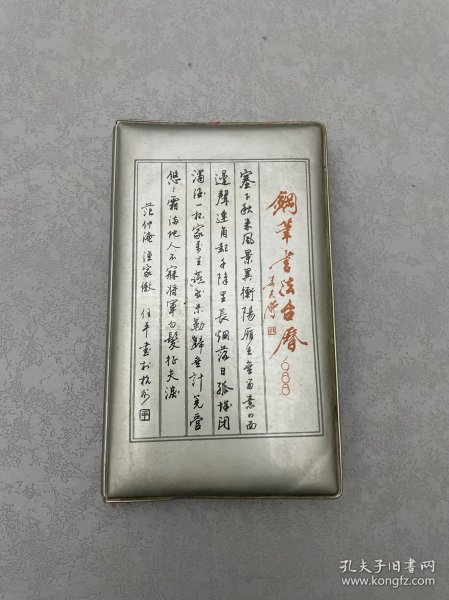 鋼筆書法台曆
1988
塞下秋来風景異衡陽雁去無留意四面
邊聲連角起千嶂里長烟落日孤城閉
濁酒一杯家萬里燕然未勒歸無計羌管
悠々霜滿地人不寐将軍白髮征夫淚
范仲淹 漁家傲 任平書於杭州
孔夫子旧书网
www.kongfz.com